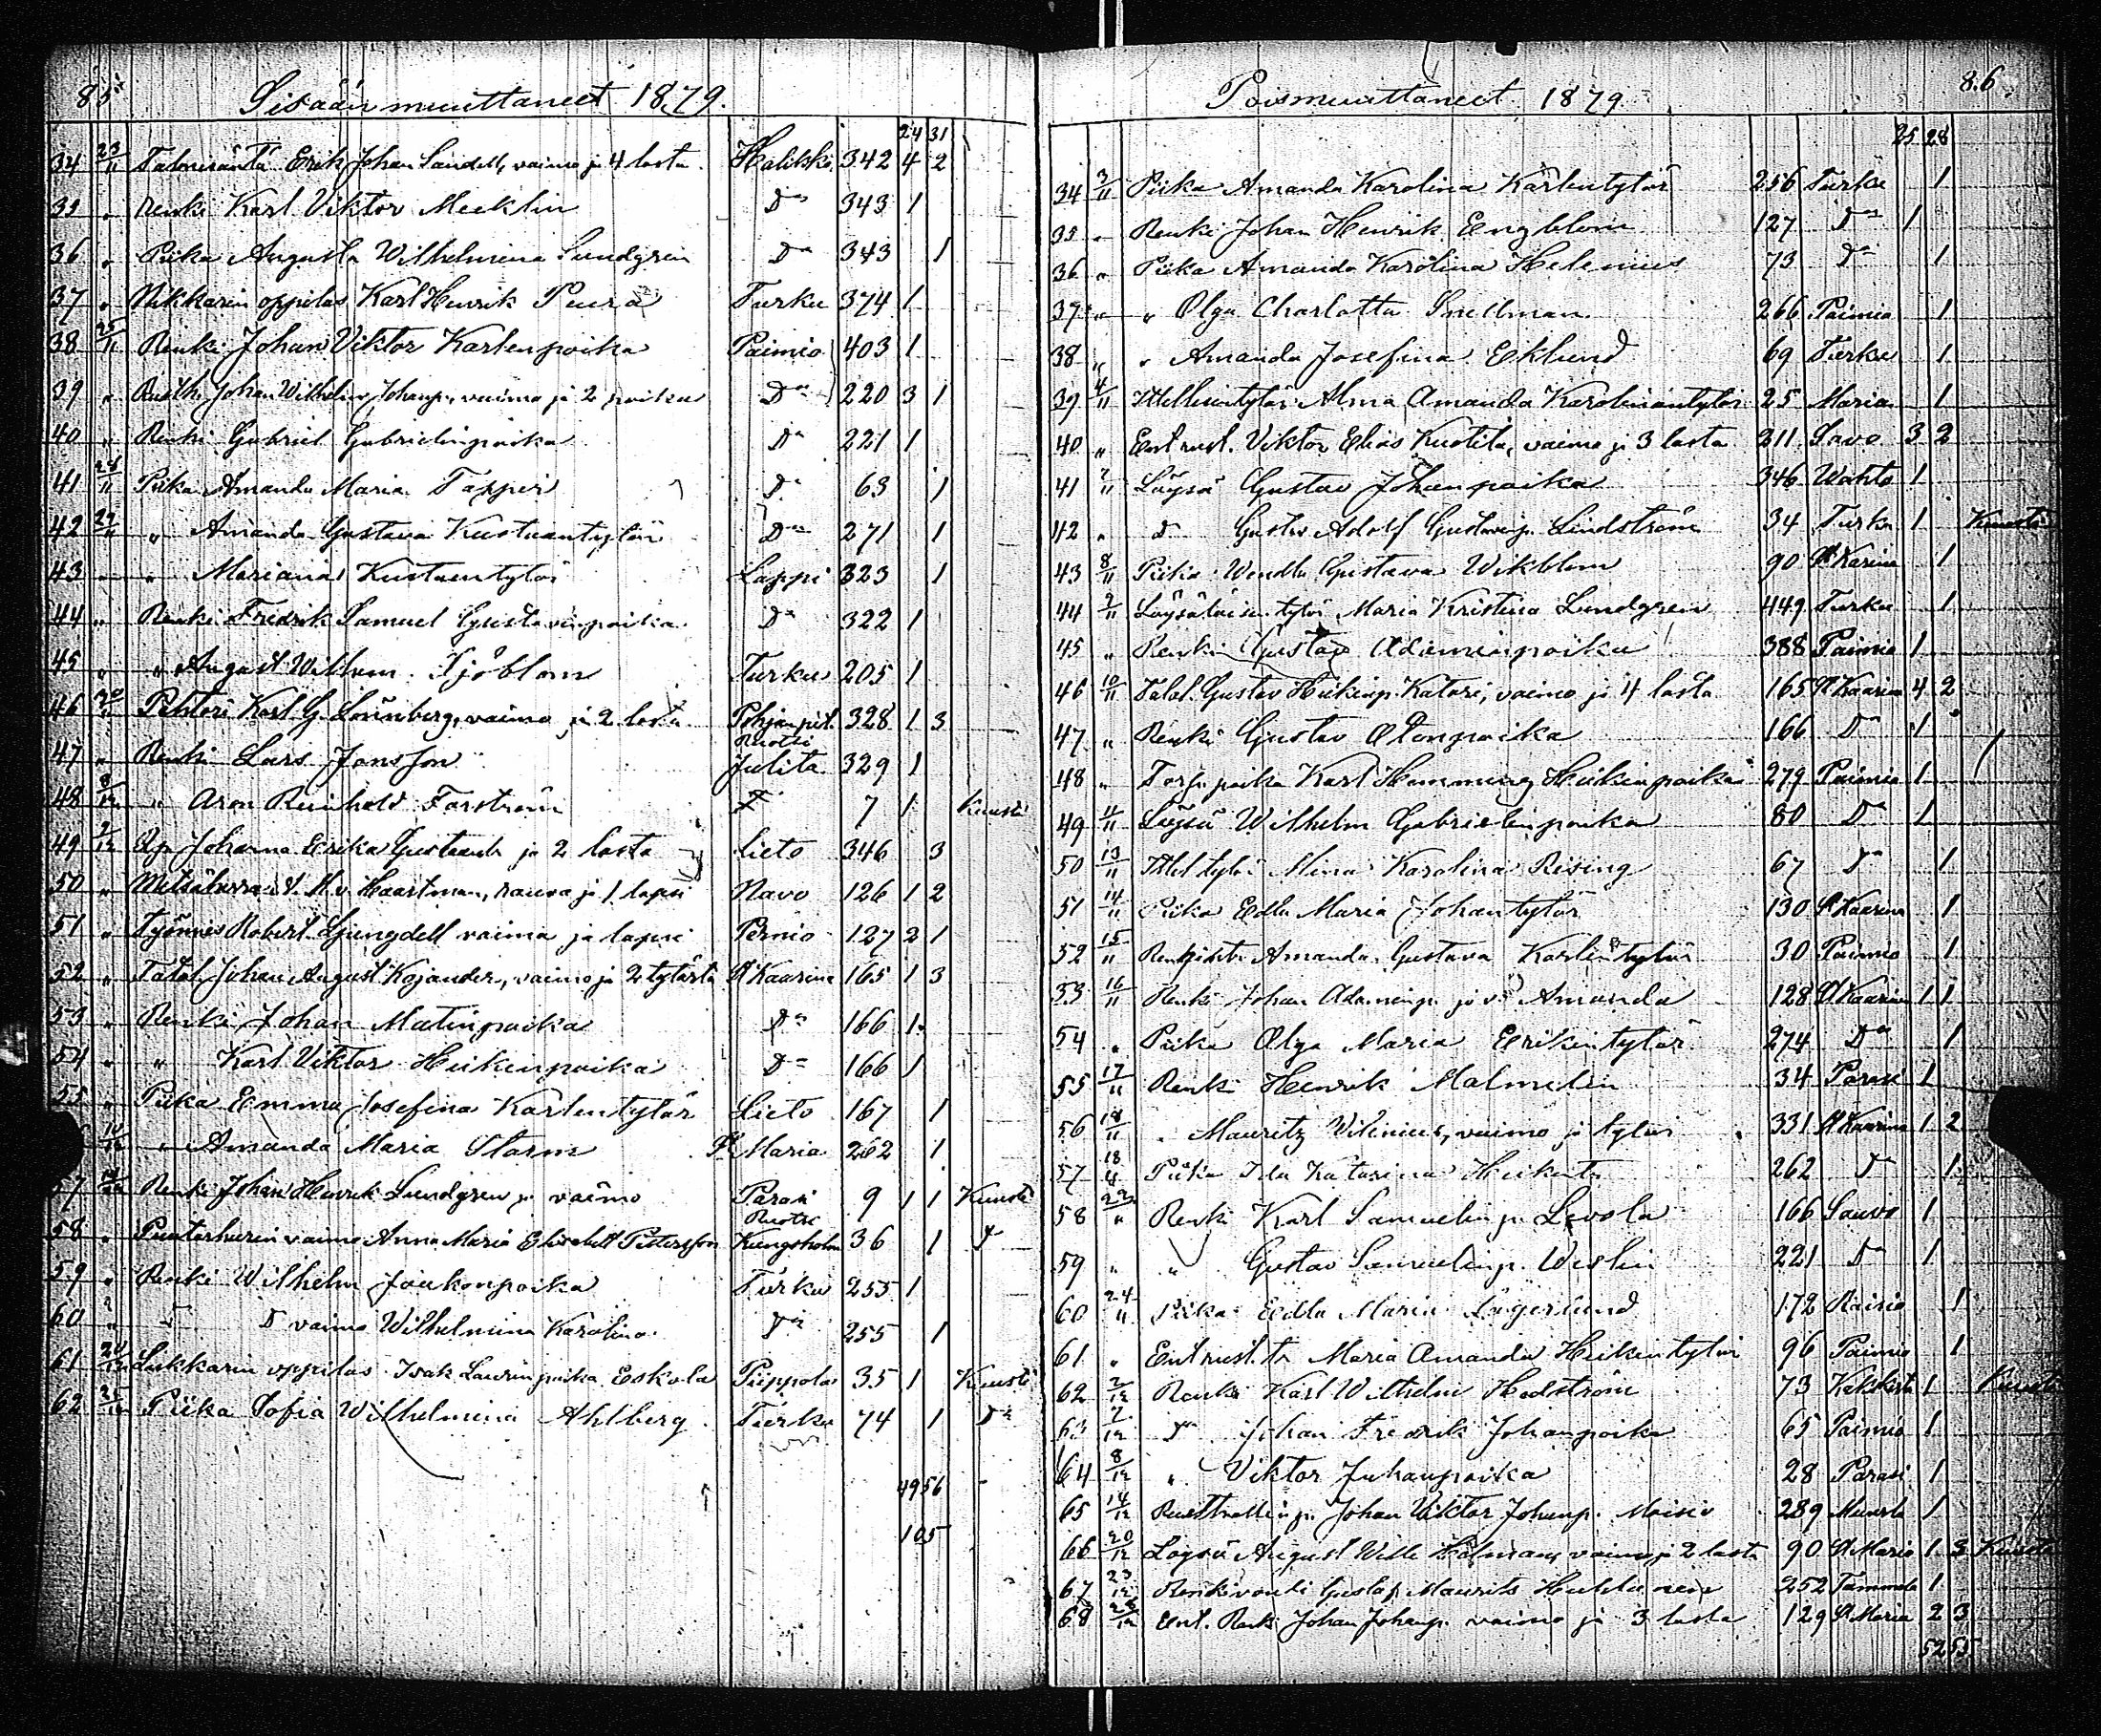 85
Sisäänmuuttaneet 1879.
24 31
34 23/11 Talonisäntä Erik Johan Sandell, vaimo ja 4 lasta Halikko 342 4 2
35 " Renki Karl Viktor Mecklin Do 343 1
36 " Piika Augusta Wilhelmina Lundgren Do 343 1
37 " Nikkarin oppilas Karl Henrik Peura Turku 374 1
38 25/11 Renki Johan Viktor Karlenpoika Paimio 403 1
39 " Johan Wilhelm Johanp., vaimo ja 2 poikaa Do 220 3 1
40 " Renki Gabriel Gabrielinpoika Do 221 1
41 28/11 Piika Amanda Maria Tapper Do 63 1
42 29/11 " Amanda Gustava Kustaantytär Do 271 1
43 " " Mariana Kustaantytär Lappi 323 1
44 " Renki Fredrik Samuel Gustavinpoika Do 322 1
45 " " August Wilhem. Sjöblom Turku 205 1
46 30/11 Pehtori Karl G. Lönnberg, vaimo ja 2 lasta Pohjan pit. 328 1 3
47 " Renki Lars Jonsson Ruotsi Julita 329 1
48 8/12 " Aron Reinhold Forström 7 1 Kuusto
49 9/12 Johanna Erika Gustaant. ja 2 lasta Lieto 346 3
50 " v. Haartman, rouva ja 1 lapsi Navo 126 1 2
51 " Työmies Robert Ljungdell vaimo ja lapsi Pernio 127 2 1
52 " Johan August Kajander, vaimo ja 2 tytärtä St Kaarina 165 1 3
53 " Renki Johan Matinpoika Do 166 1
54 " " Karl Viktor Heikinpoika Do 166 1
55 " Piika Emma Josefina Karlentytär Lieto 167 1
10/12 " Amanda Maria Storm St Maria 262 1
57 Renki Johan Henrik Lundgren ja vaimo Paraisi 9 1 1 Kuusto
58 " Puutarhurin vaimo Anna Maria Elisabett Pettersson Ruotsi Kungsholm 36 1 Do
59 " Renki Wilhelm Jaakonpoika Turku 255 1
60 " D vaimo Wilhelmina Karolina Do 255 1
61 20/12 Lukkarin oppilas Isak Laurinpoika Eskola Piippola 35 1 Kuusto
62 Piika Sofia Wilhelmina Ahlberg Turku 74 1 Do
49 56
105
86
Poismuuttaneet 1879
25 28
34 3/11 Piika Amanda Karolina Karlentytär 256 Turku 1
35 " Renki Johan Henrik Engblom 127 Do 1
36 " Piika Amanda Karolina Helenius 73 Do 1
37 " " Olga Charlotta Snellman 266 Paimio 1
38 " " Amanda Josefina Eklund 69 Turku 1
39 4/11 Alma Amanda Karolinantytär 25 Maria 1
40 " Ent rust. Viktor Elias Kustila, vaimo ja 3 lasta 211 Savo 3 2
41 7/11 Löysä Gustav Johanpoika 346 Wahto 1
42 " D Gustav Adolf Gustavinp. Lindström 34 Turku 1 Kuusto
43 8/11 Piika Wendla Gustava Wikblom 90 St Karina 1
44 9/11 Löysäläisen tytär Maria Kristina Lundgren 449 Turku 1
45 " Renki Gustav Adaminpoika 388 Paimio 1
46 10/11 Talol. Gustav Heikinp. Katari, vaimo ja 4 lasta 165 St Kaarina 4 2
47 " Renki Gustav Otonpoika 166 Do 1
48 " Torp. poika Karl Hemming Heikinpoika 279 Paimio 1
49 11/11 Löysä Wilhelm Gabrielinpoika 80 Do 1
50 13/11 Mina Karolina Rising 67 Do 1
51 14/11 Piika Edla Maria Johantytär 130 St Kaarina 1
52 15/11 Amanda Gustava Karlintytär 30 Paimio 1
53 16/11 Renki Johan Adaminp. ja v. Amanda 128 St Kaarina 1 1
54 " Piika Olga Maria Erikintytär 274 Do 1
55 17/11 Renki Henrik Malmelin 34 Parais 1
56 18/11 " Mauritz Wilenius, vaimo ja tytär 331 St Kaarina 1 2
57 18/11 Piika Ida Katarina Heikint. 262 Do 1
58 22/11 Renki Karl Samuelinp. Levola 166 Sauvo 1
59 " " Gustav Samuelinp. Weslin 221 Do 1
60 24/11 Piika Edla Maria Lagerlund 172 Raisio 1
61 " Ent rust. tr Maria Amanda Heikintytär 96 Paimio 1
62 2/12 Renki Karl Wilhelm Hedström 73 Kakskerta 1 Kuusto
63 7/12 Do Johan Fredrik Johanpoika 65 Paimio 1
64 8/12 " Viktor Juhanpoika 28 Paraisi 1
65 14/12 Johan Viktor Johanp. Moisio 289 1
66 20/12 Löysä August Wille Holman, vaimo ja 2 lasta 90 St Maria 1 3 Kuusto
67 23/12 Renkivouti Gustaf Maurits 252 Tammela 1
68 28/12 Ent. Renki Johan Johanp. vaimo ja 3 lasta 129 St Maria 2 3
52 55